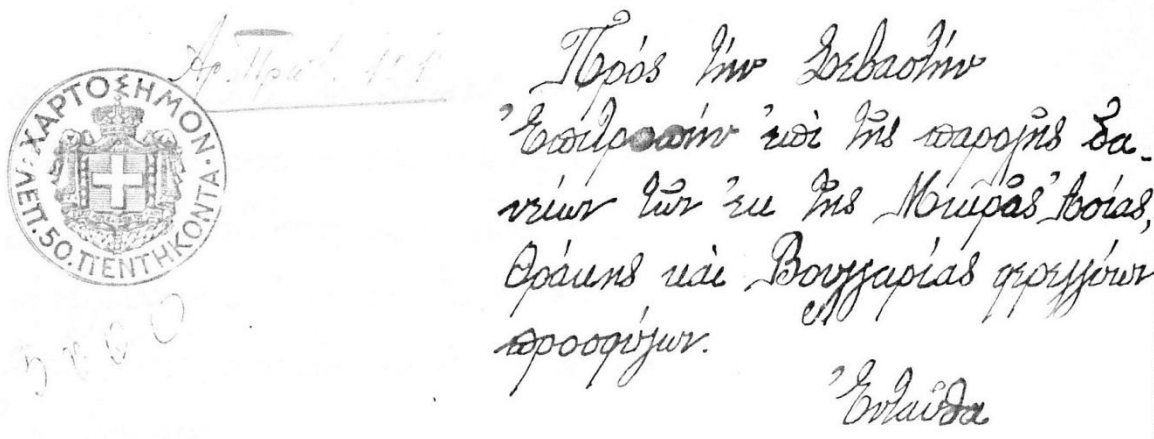 Αρ. Πρωτ.
ΧΑΡΤΟΣΗΜΟΝ · ΛΕΠ. 50. ΠΕΝΤΗΚΟΝΤΑ
Πρός τήν Σεβαστήν
Ἐπιτροπήν ἐπὶ τῆς παροχῆς δα-
νείων τῶν ἐκ τῆς Μικρᾶς Ἀσίας,
Θράκης καὶ Βουλγαρίας φερεγγύων
προσφύγων.
Ἐνταῦθα